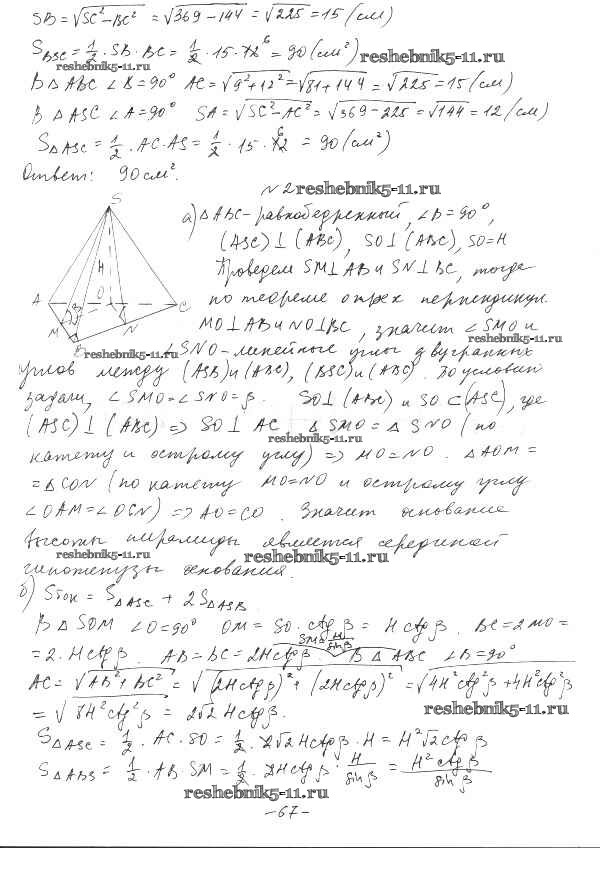 SB = √SC² − BC² = √369 − 144 = √225 = 15 (см)
S_BSC = 1/2 · SB · BC = 1/2 · 15 · 12 6 = 90 (см²) reshebnik5-11.ru
reshebnik5-11.ru
В △ ABC ∠B = 90° AC = √9² + 12² = √81 + 144 = √225 = 15 (см)
В △ ASC ∠A = 90° SA = √SC² − AC² = √369 − 225 = √144 = 12 (см)
S△ASC = 1/2 · AC · AS = 1/2 · 15 · 12 6 = 90 (см²)
Ответ: 90 см².
N 2 reshebnik5-11.ru
S
H
O
A
C
M
N
B
β
а) △ABC – равнобедренный, ∠B = 90°,
(ASC) ⊥ (ABC), SO ⊥ (ABC), SO = H
Проведем SM ⊥ AB и SN ⊥ BC, тогда
по теореме о трех перпендикул.
MO ⊥ AB и NO ⊥ BC, значит ∠SMO и
reshebnik5-11.ru
reshebnik5-11.ru
∠SNO – линейные углы двугранных
углов между (ASB) и (ABC), (BSC) и (ABC). По условию
задачи, ∠SMO = ∠SNO = β. SO ⊥ (ABC) и SO ⊂ (ASC), где
(ASC) ⊥ (ABC) ⇒ SO ⊥ AC △ SMO = △ SNO (по
reshebnik5-11.ru
катету и острому углу) ⇒ MO = NO. △AOM =
= △CON (по катету MO = NO и острому углу
∠OAM = ∠OCN) ⇒ AO = CO. Значит основание
высоты пирамиды является серединой
reshebnik5-11.ru reshebnik5-11.ru
гипотенузы основания.
б) Sбок = S△ASC + 2S△ASB.
В △ SOM ∠O = 90° OM = SO · ctg β = H ctg β. BC = 2MO =
SM = H/sin β
= 2 · H ctg β. AB = BC = 2H ctg β В △ ABC ∠B = 90°
AC = √AB² + BC² = √(2H ctg β)² + (2H ctg β)² = √4H² ctg² β + 4H² ctg² β
= √8H² ctg² β = 2√2 H ctg β.
reshebnik5-11.ru
S△ASC = 1/2 · AC · SO = 1/2 · 2√2 H ctg β · H = H²√2 ctg β
S△ASB = 1/2 · AB · SM = 1/2 · 2H ctg β · H/sin β = H² ctg β/sin β
reshebnik5-11.ru
– 67 –